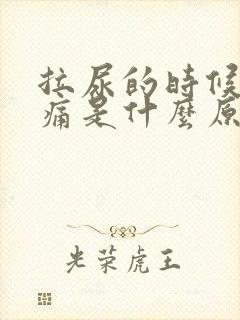 拉尿的時候
痛是什麼原
光荣虎王